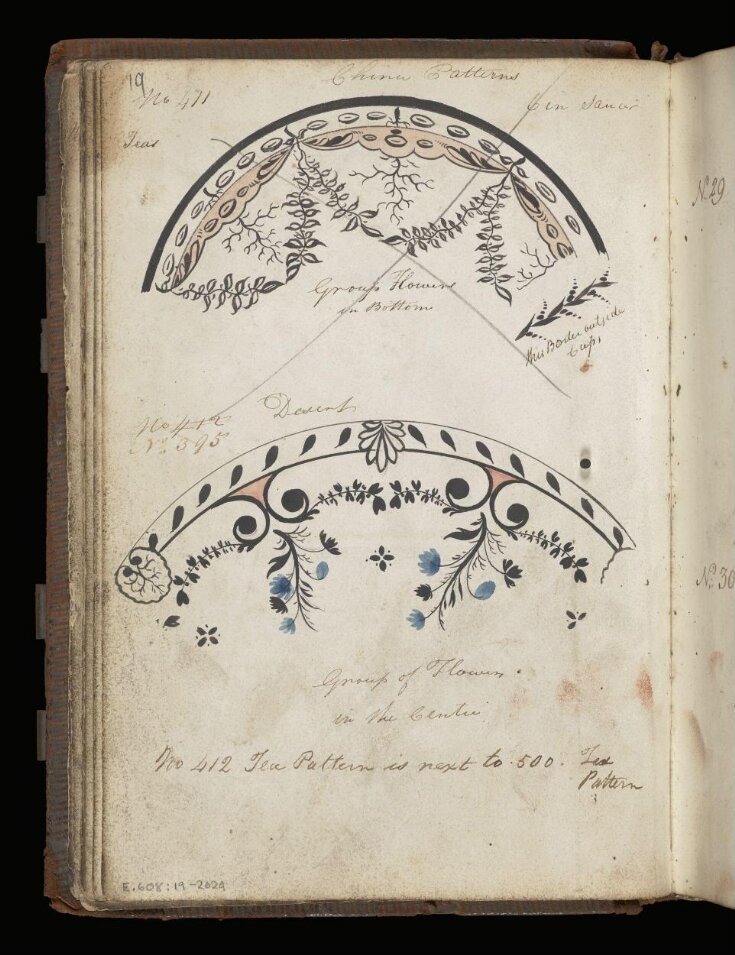 19
China Patterns
No 471
6 in Saucr
Teas
Group Flowers
in Bottom
this Border outside
Cups
No 412
No 395
Desert
Group of Flowers
in the Centre
No 412 Tea Pattern is next to 500. Tea
Pattern
E.608:19-2024
No 29
No 30